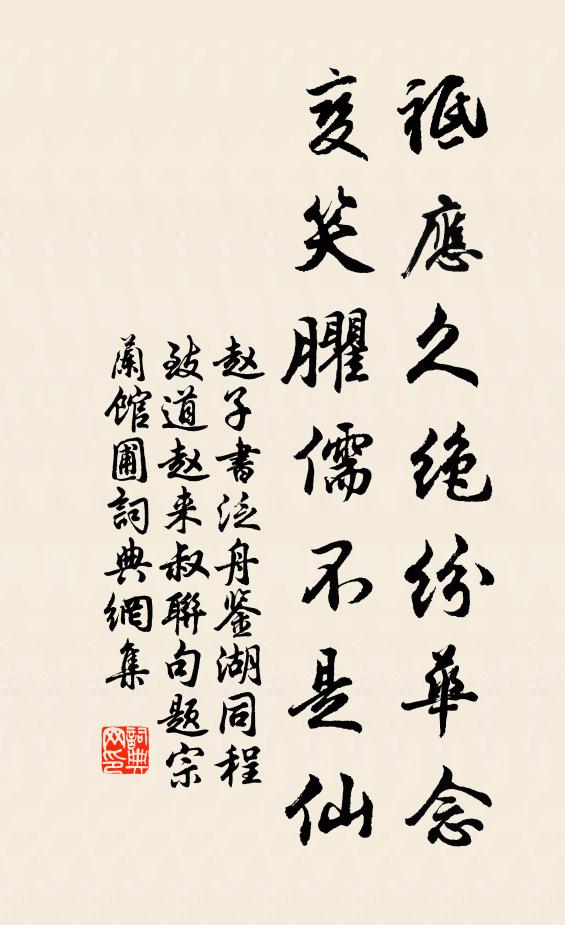 祗應久絶紛華念
变笑臞儒不是仙
赵子書泛舟鉴湖同程
致道赵来叔聨句题宗
蘭馆圃詞典網集
詞典
网印